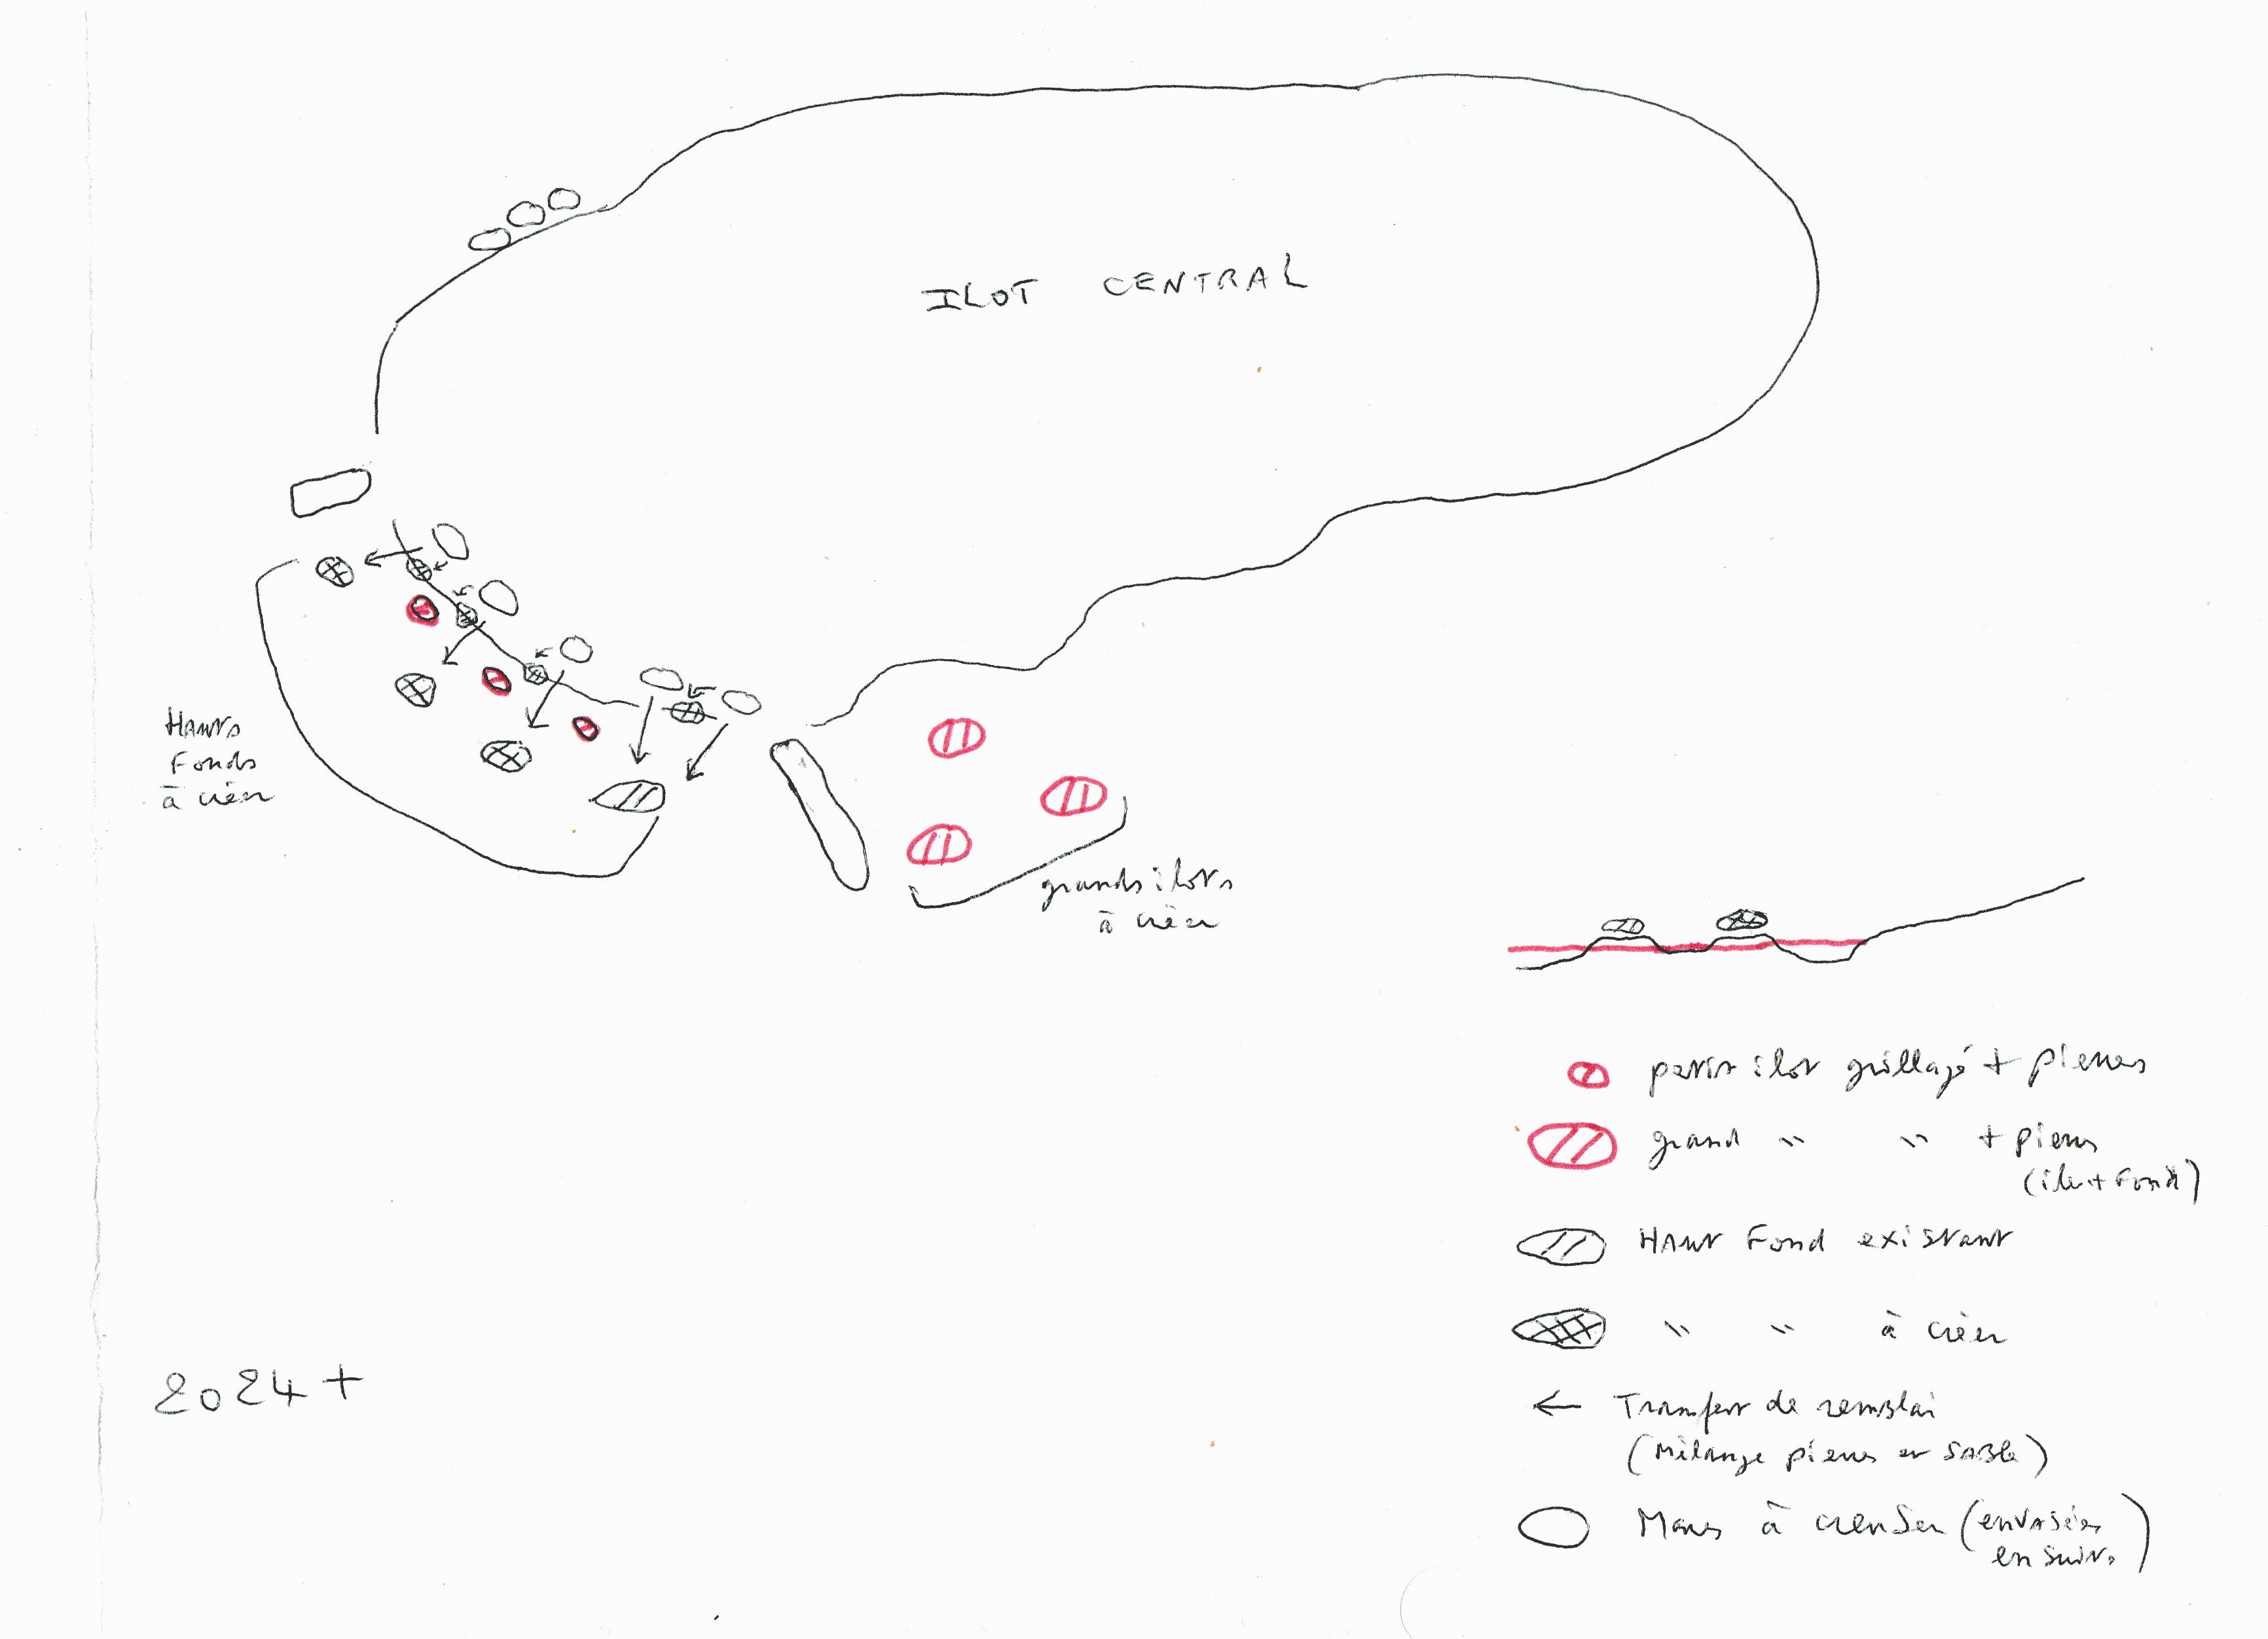 ILOT CENTRAL
Hauts
Fonds
à créer
grands ilots
à créer
petit ilot grillagé + pierres
grand " " + pierres
(ilot + fond)
HAUT Fond existant
" " à créer
← Transfert de remblai
(Mélange pierres et SABLe)
Mares à creuser (envasées
ensuite)
2024 +